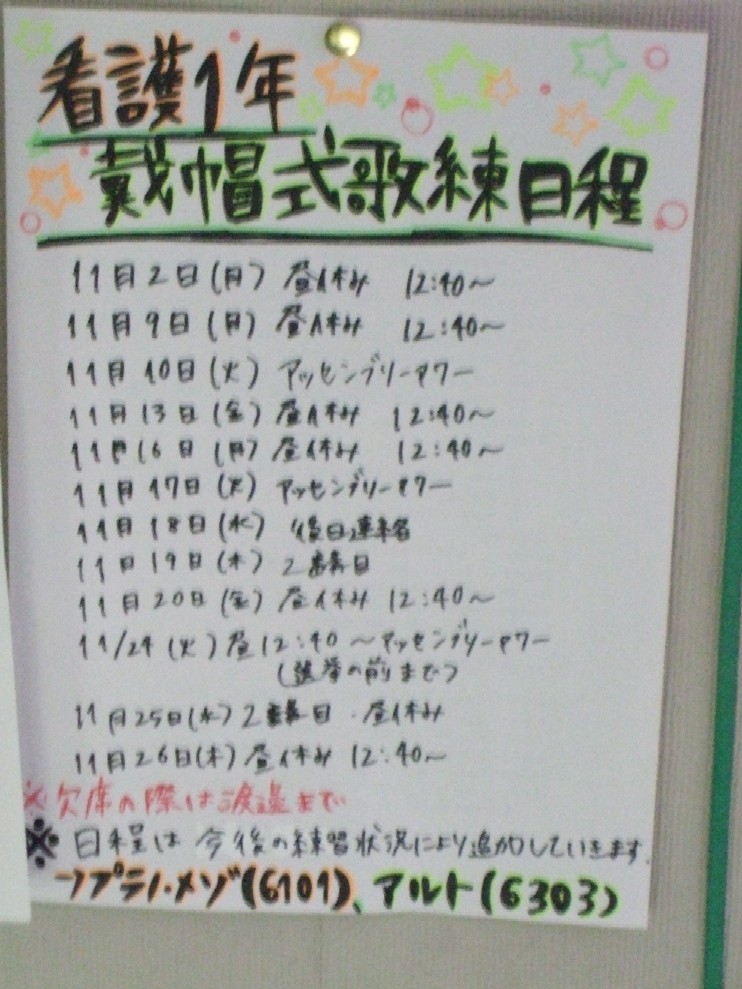 看護1年
戴帽式歌練日程
11月2日(月) 昼休み 12:40〜
11月9日(月) 昼休み 12:40〜
11月10日(火) アッセンブリーアワー
11月13日(金) 昼休み 12:40〜
11月16日(月) 昼休み 12:40〜
11月17日(火) アッセンブリーアワー
11月18日(水) 後日連絡
11日19日(木) 2講目
11月20日(金) 昼休み 12:40〜
11/24(火) 昼12:40〜アッセンブリーアワー
(選挙の前まで)
11月25日(水) 2講目・昼休み
11月26日(木) 昼休み 12:40〜
※欠席の際は渡邉まで
※日程は今後の練習状況により追加していきます.
ソプラノ・メゾ(6101)、アルト(6303)